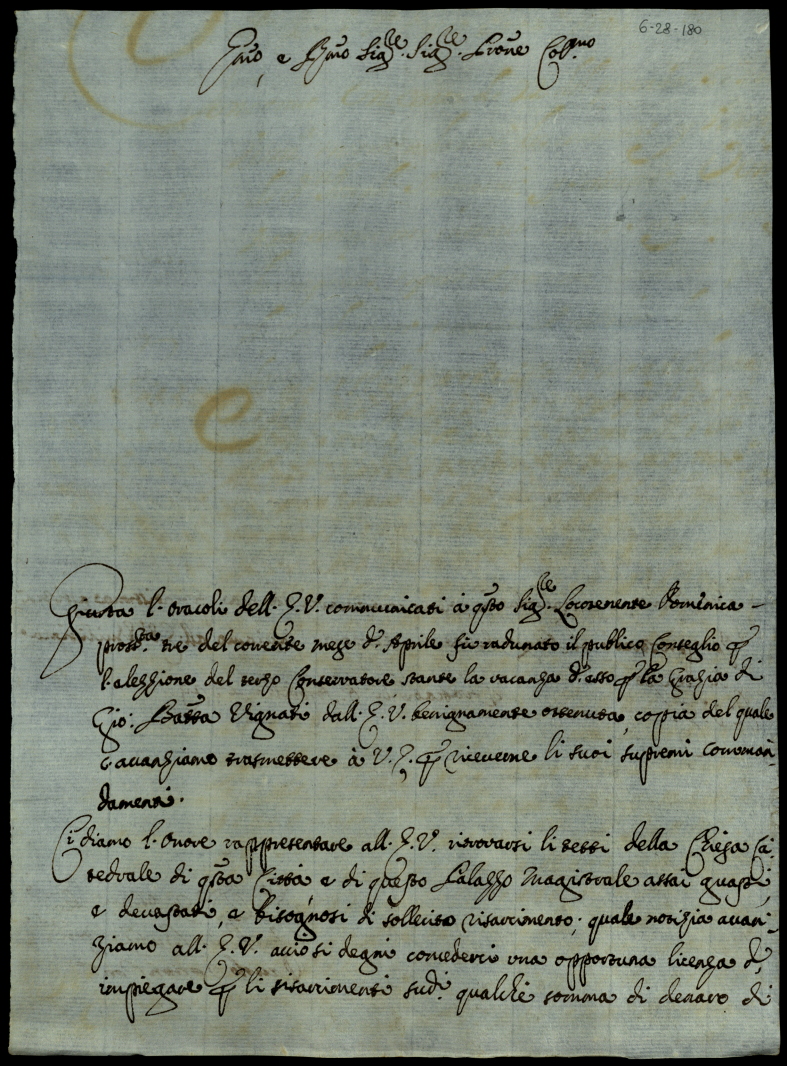 6-28-180
Emo, e Rmo Sigre. Sigre. Prone Colmo
Giusta l'oracoli dell'E. V. communicati à qsto Sigre. Locotenente Domenica
prossa. tre del corrente mese d'Aprile fù radunato il publico Conseglio p
l'alezzione del terzo Conservatore stante la vacanza d'esso p la Grazia di
Gio: Batta Vignati dall'E. V. benignamente ottenuta, copia del quale
avanziamo trasmettere à V. E. p riceverne li suoi supremi comman-
damenti.
Ci diamo l'onore rappresentare all'E. V. ritrovarsi li tetti della Chiesa Ca-
tedrale di qsta Città e di questo Palazzo Magistrale assai guasti,
e devastati, e bisognosi di sollecito risarcimento; quale notizia avan-
ziamo all'E. V. acciò si degni concederci una opportuna licenza d'
impiegare p li risarcimenti sudi. qualche somma di denaro di